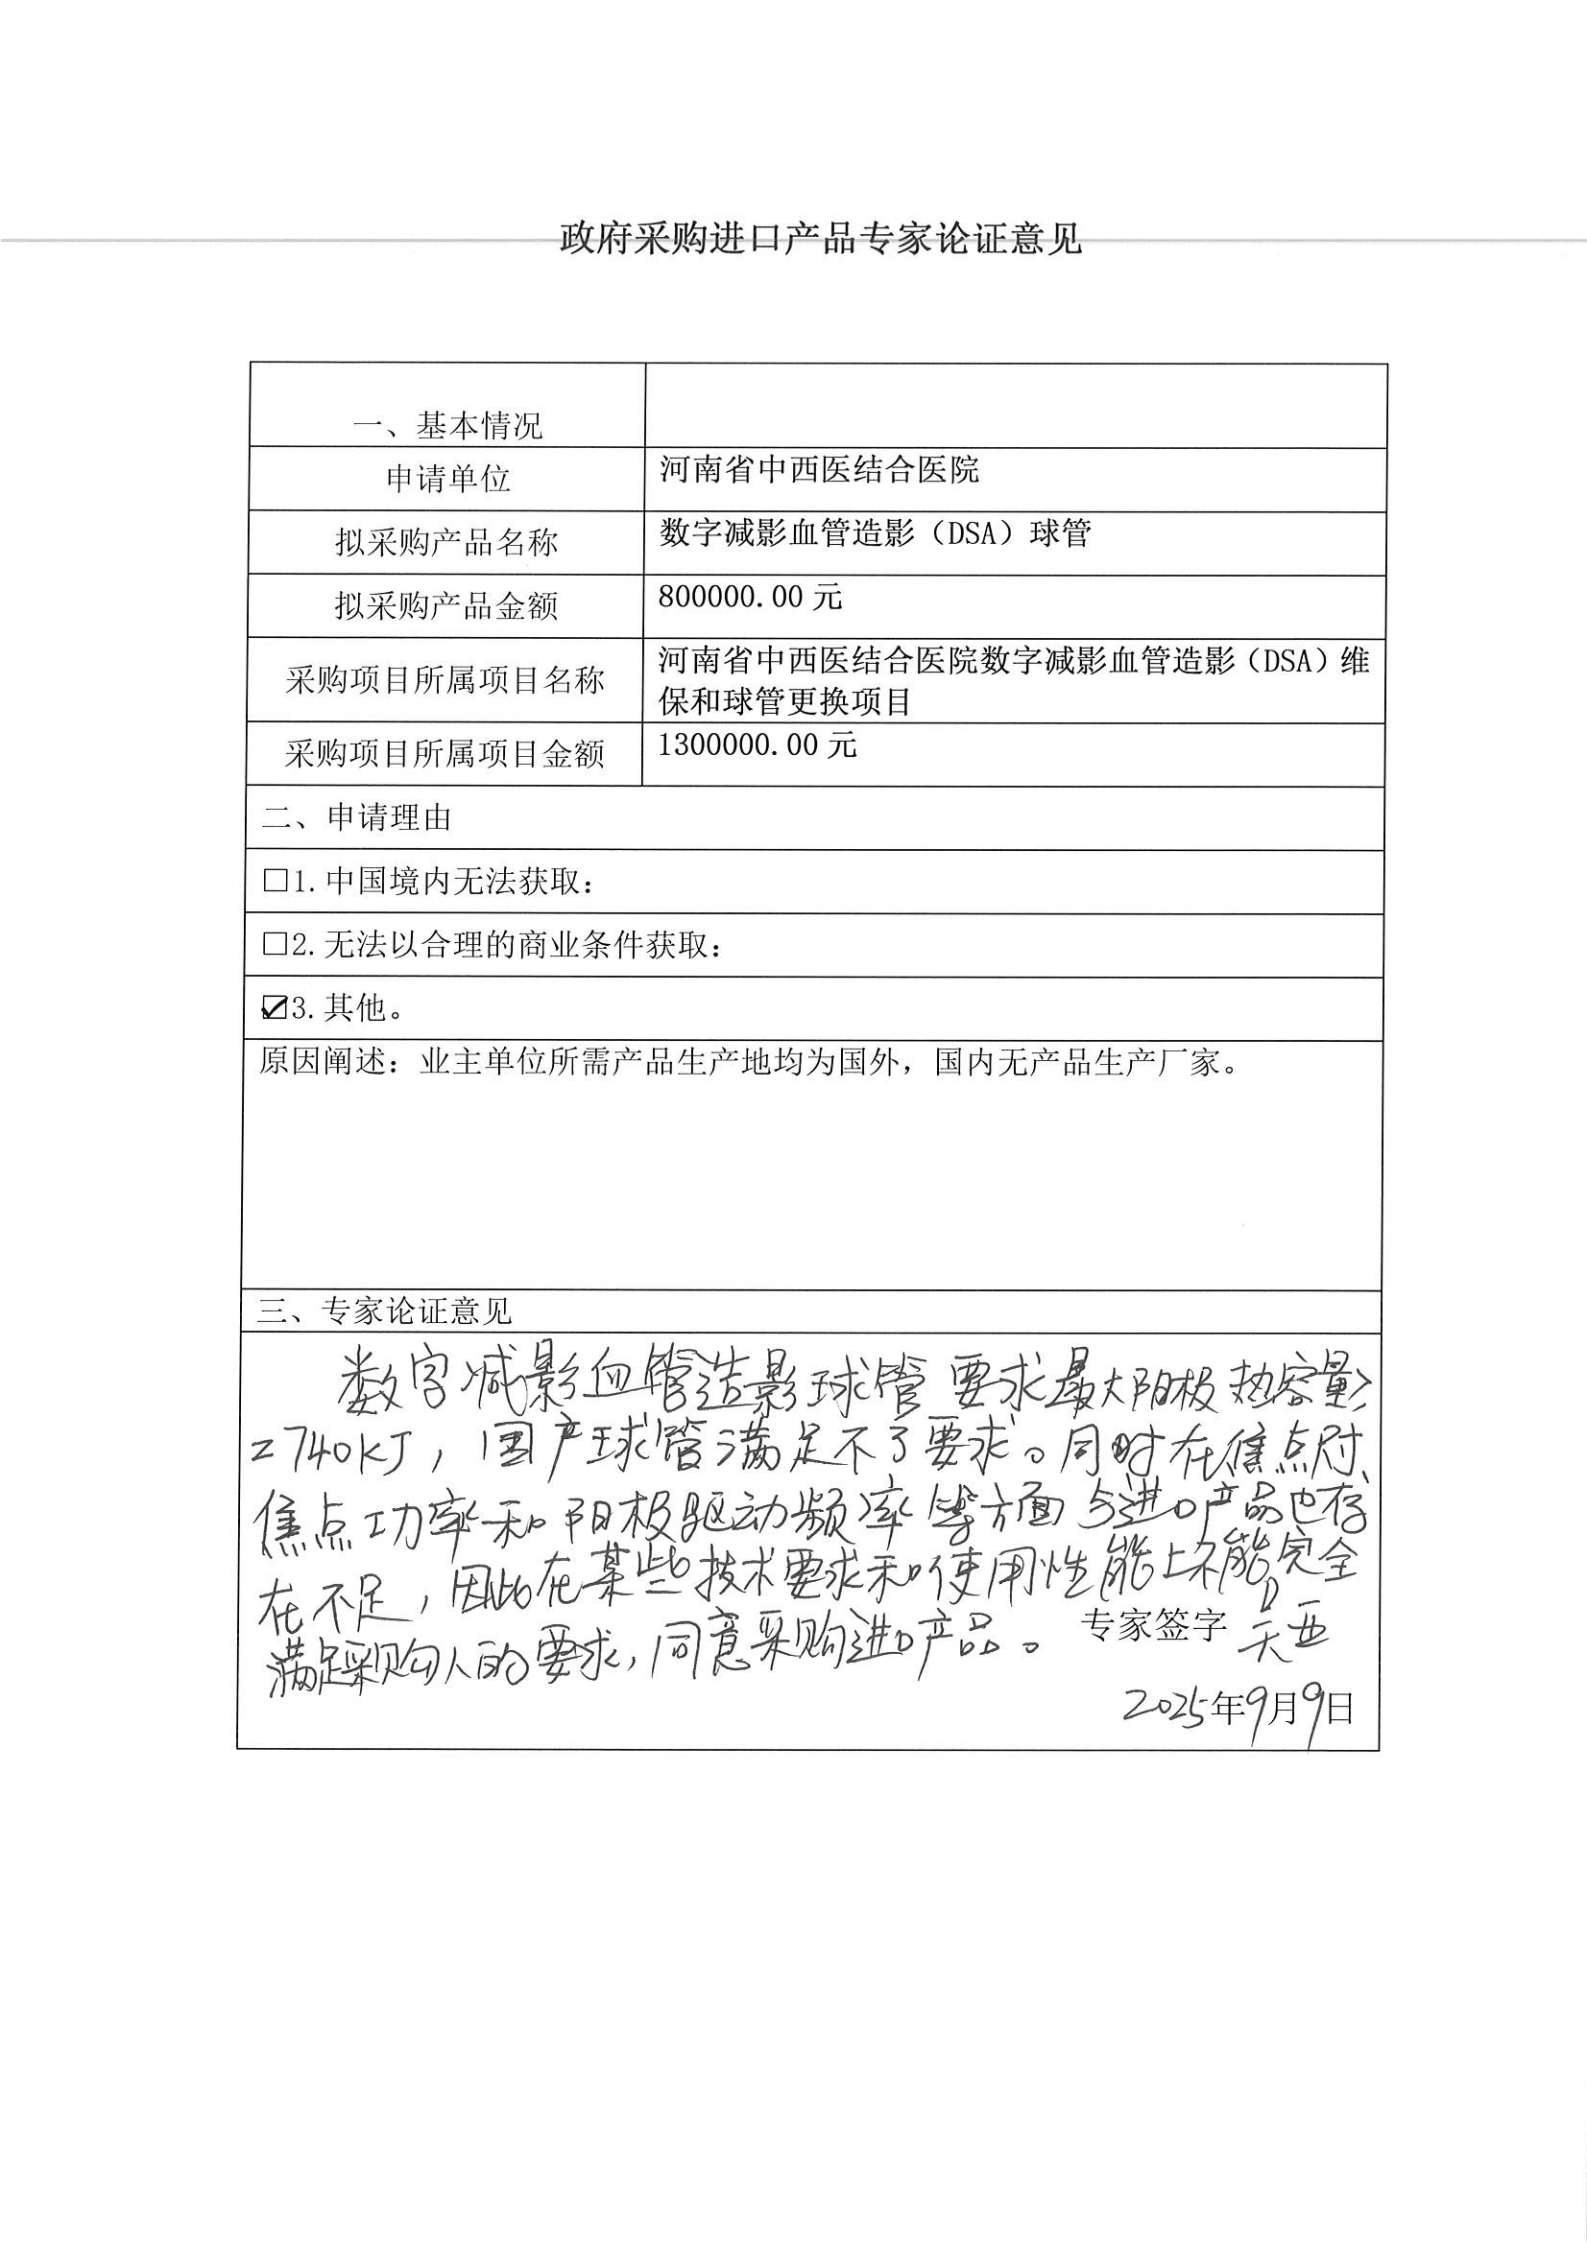 政府采购进口产品专家论证意见
一、基本情况
申请单位
河南省中西医结合医院
拟采购产品名称
数字减影血管造影（DSA）球管
拟采购产品金额
800000.00 元
采购项目所属项目名称
河南省中西医结合医院数字减影血管造影（DSA）维
保和球管更换项目
采购项目所属项目金额
1300000.00 元
二、申请理由
□1.中国境内无法获取：
□2.无法以合理的商业条件获取：
☑3.其他。
原因阐述：业主单位所需产品生产地均为国外，国内无产品生产厂家。
三、专家论证意见
数字减影血管造影球管要求最大阳极热容量>
=740KJ，国产球管满足不了要求。同时在焦点尺寸、
焦点功率和阳极驱动频率等方面与进口产品也存
在不足，因此在某些技术要求和使用性能上不能完全
满足采购人的要求，同意采购进口产品。
专家签字 吴亚
2025年9月9日